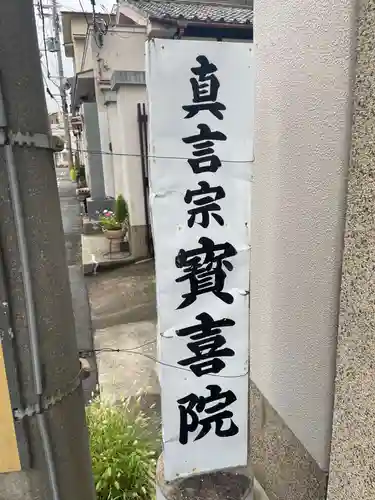 真言宗寳喜院